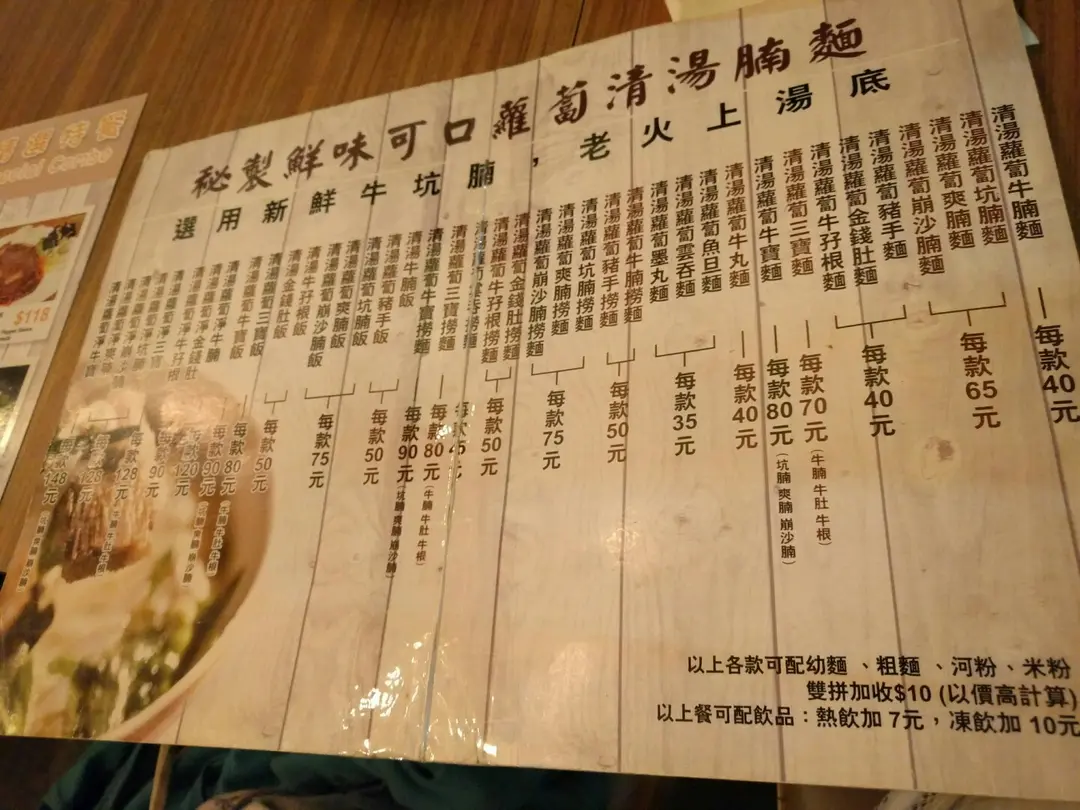 秘製鮮味可口蘿蔔清湯腩麵
選用新鮮牛坑腩，老火上湯底
清湯蘿蔔牛腩麵
每款40元
清湯蘿蔔坑腩麵
清湯蘿蔔爽腩麵
清湯蘿蔔崩沙腩麵
每款65元
清湯蘿蔔豬手麵
清湯蘿蔔金錢肚麵
清湯蘿蔔牛孖根麵
每款40元
清湯蘿蔔三寶麵
每款70元（牛腩 牛肚 牛根）
清湯蘿蔔牛寶麵
每款80元（坑腩 爽腩 崩沙腩）
清湯蘿蔔牛丸麵
每款40元
清湯蘿蔔魚旦麵
清湯蘿蔔雲吞麵
清湯蘿蔔墨丸麵
每款35元
清湯蘿蔔牛腩撈麵
清湯蘿蔔豬手撈麵
每款50元
清湯蘿蔔坑腩撈麵
清湯蘿蔔爽腩撈麵
清湯蘿蔔崩沙腩撈麵
每款75元
清湯蘿蔔金錢肚撈麵
清湯蘿蔔牛孖根撈麵
每款50元
清湯蘿蔔三寶撈麵
每款80元（牛腩 牛肚 牛根）
清湯蘿蔔牛寶撈麵
每款90元（坑腩 爽腩 崩沙腩）
清湯牛腩飯
清湯蘿蔔豬手飯
每款50元
清湯蘿蔔坑腩飯
清湯蘿蔔爽腩飯
清湯蘿蔔崩沙腩飯
每款75元
清湯牛孖根飯
清湯金錢肚飯
每款50元
清湯蘿蔔三寶飯
每款80元
清湯蘿蔔牛寶飯
每款90元
清湯蘿蔔淨牛腩
清湯蘿蔔淨金錢肚
清湯蘿蔔淨牛孖根
清湯蘿蔔淨三寶
清湯蘿蔔淨坑腩
清湯蘿蔔淨爽腩
清湯蘿蔔淨牛寶
以上各款可配幼麵、粗麵、河粉、米粉
雙拼加收$10 (以價高計算)
以上餐可配飲品：熱飲加 7元，凍飲加 10元
$118